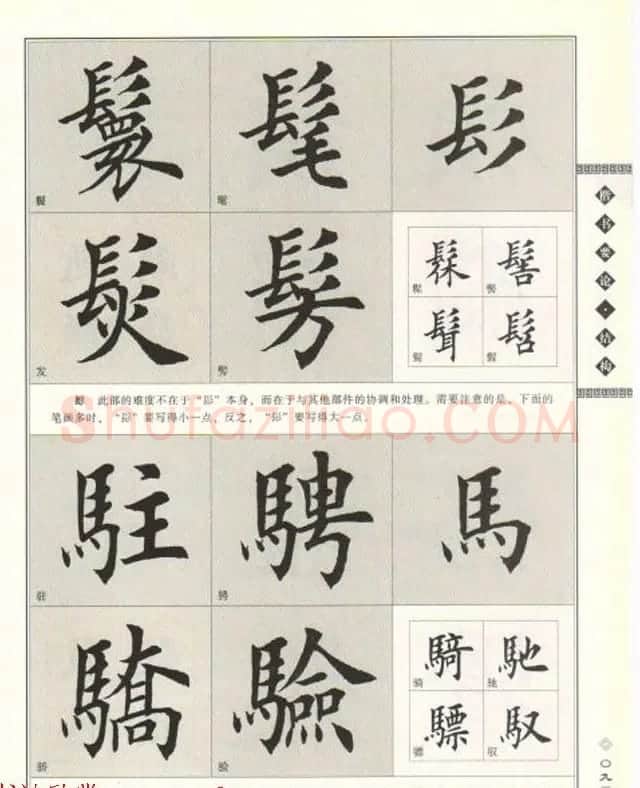 鬟 髦 髟
鬟 髦
髮 髣
发
髹 髻
髟 此部的难度不在于“髟”本身，而在于与其他部件的协调和处理。需要注意的是，下面的
笔画多时，“髟”要写得小一点，反之，“髟”要写得大一点。
shufaziliao.COM
駐 騁 馬
驻 骋
驕 驗
骄 验
騎 馳
骑 驰
驃 馭
骠 驭
楷书要论·结构
〇九